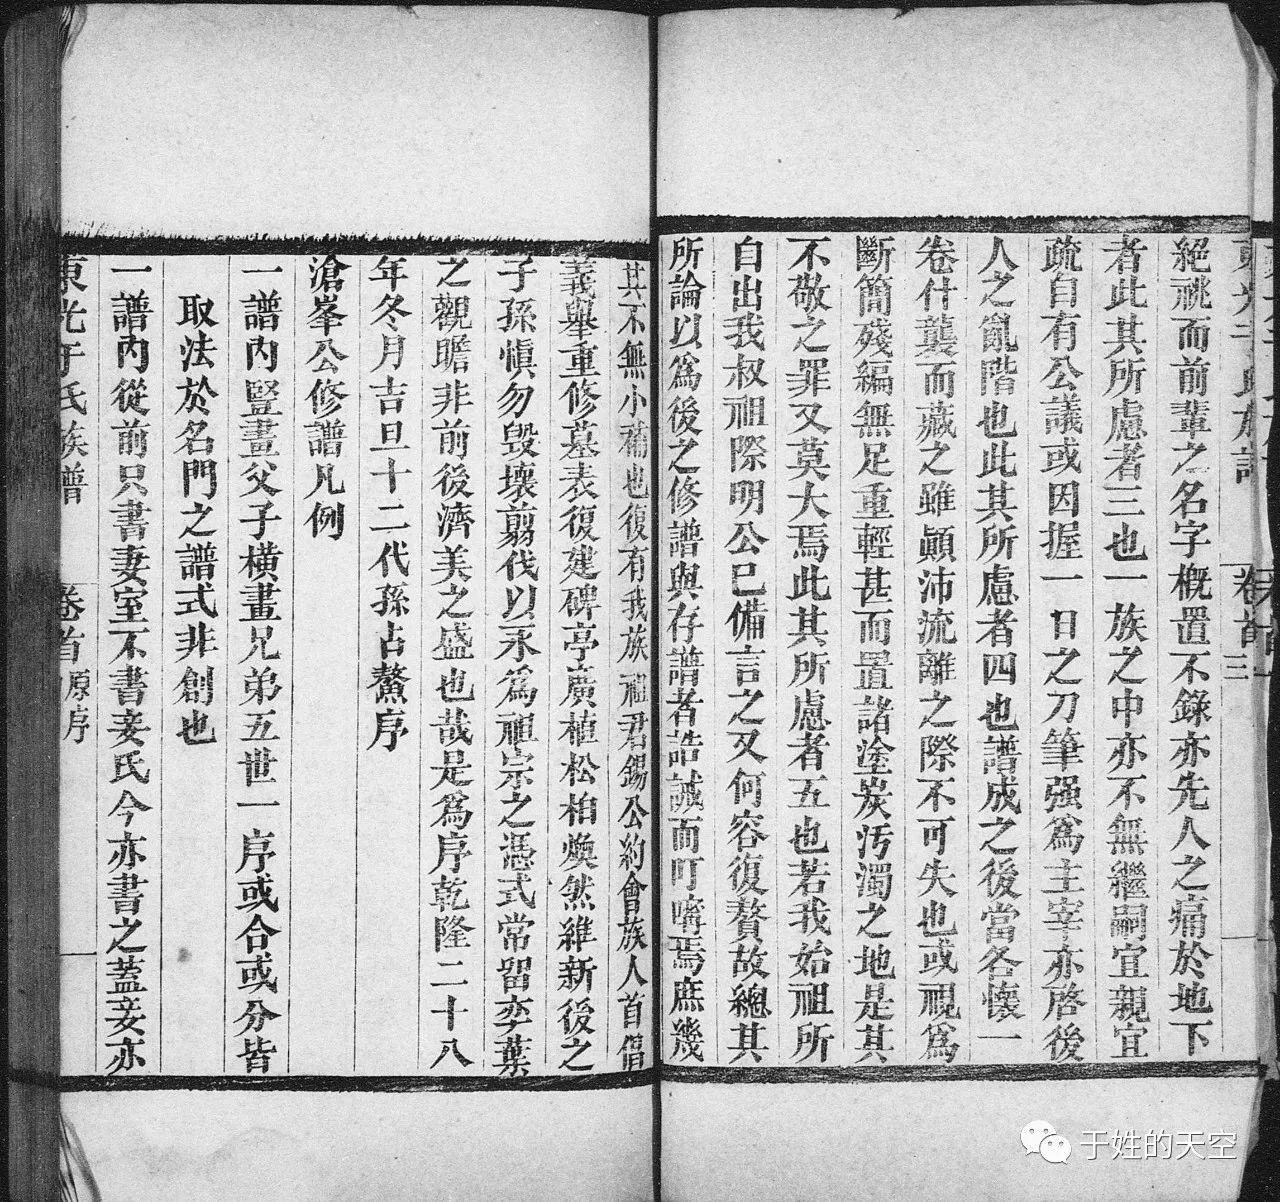 絕祧而前輩之名字概置不錄亦先人之痛於地下
者此其所慮者三也一族之中亦不無繼嗣宜親宜
疏自有公議或因握一日之刀筆强為主宰亦啓後
人之亂階也此其所慮者四也譜成之後當各懷一
卷什襲而藏之雖顚沛流離之際不可失也或視為
斷簡殘編無足重輕甚而置諸塗炭汚濁之地是其
不敬之罪又莫大焉此其所慮者五也若我始祖所
自出我叔祖際明公已備言之又何容復贅故總其
所論以為後之修譜與存譜者誥誡而叮嚀焉庶幾
其不無小補也復有我族祖君錫公約會族人首倡
義舉重修墓表復建碑亭廣植松柏煥然維新後之
子孫愼勿毀壞剪伐以永為祖宗之憑式常留奕葉
之觀瞻非前後濟美之盛也哉是為序乾隆二十八
年冬月吉旦十二代孫占鰲序
滄峯公修譜凡例
一譜內豎畫父子橫畫兄弟五世一序或合或分皆
取法於名門之譜式非創也
一譜內從前只書妻室不書妾氏今亦書之蓋妾亦
東光于氏族譜 卷首 原序 一
于姓的天空